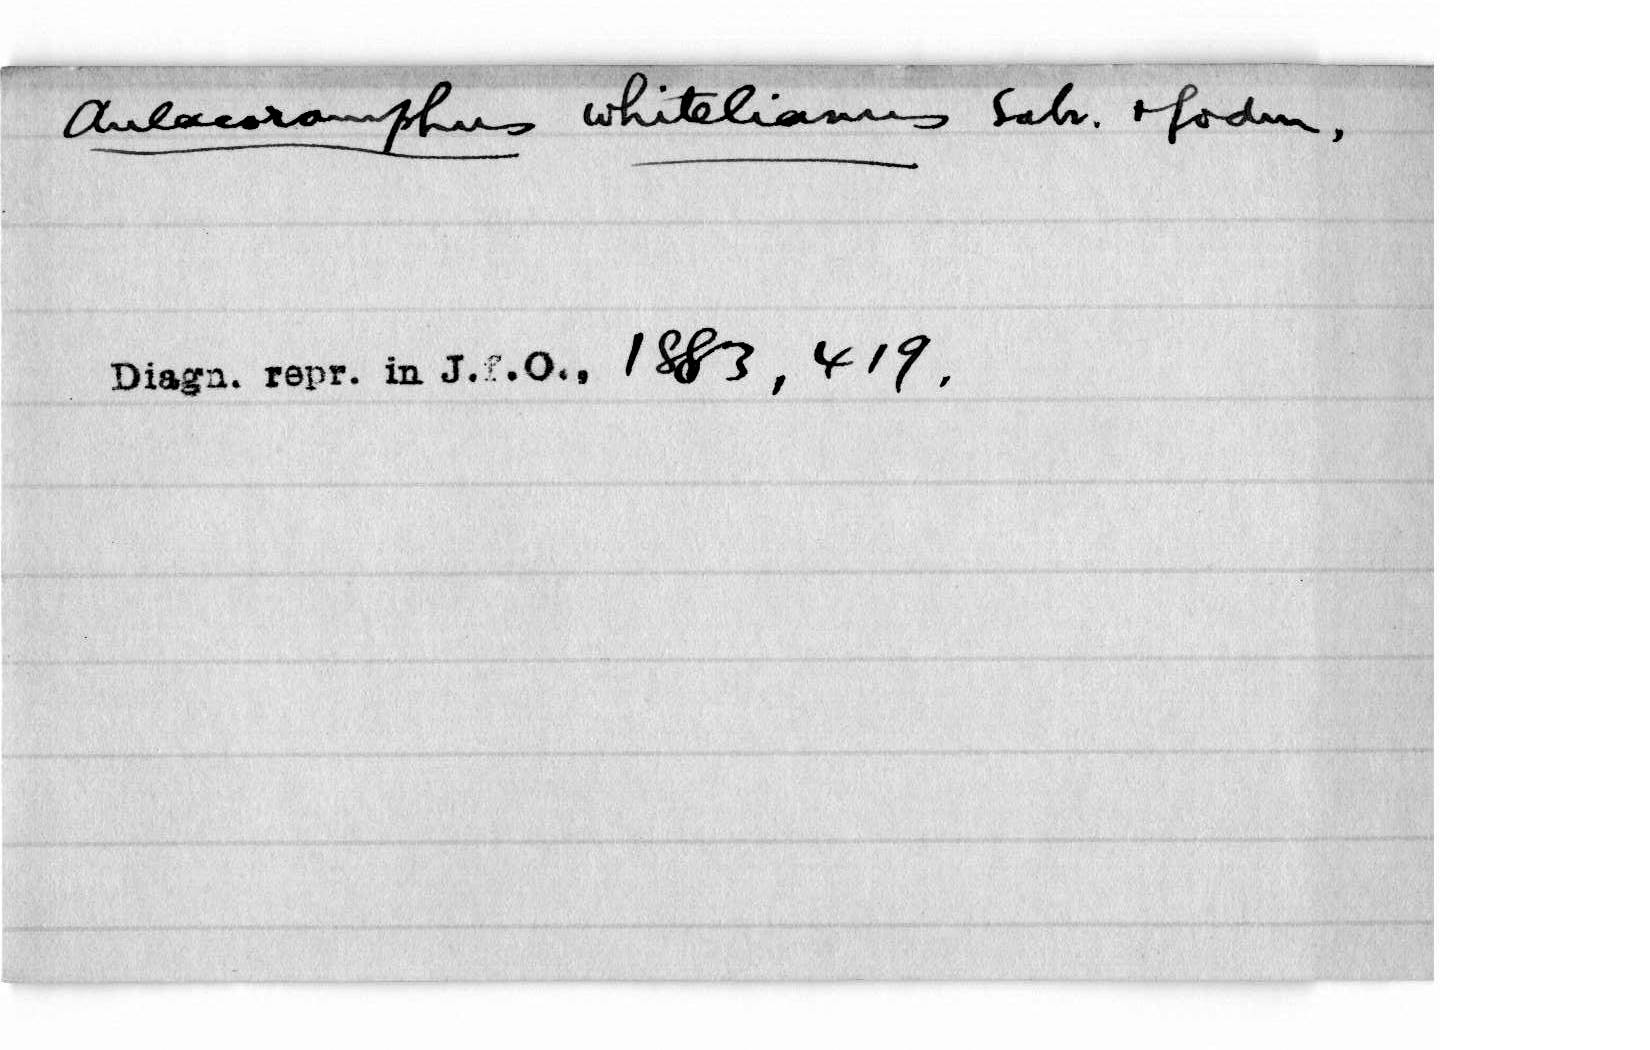 Aulacoramphus whitelianus Salv. + Godm,
Diagn. repr. in J.f.O., 1883, 419.